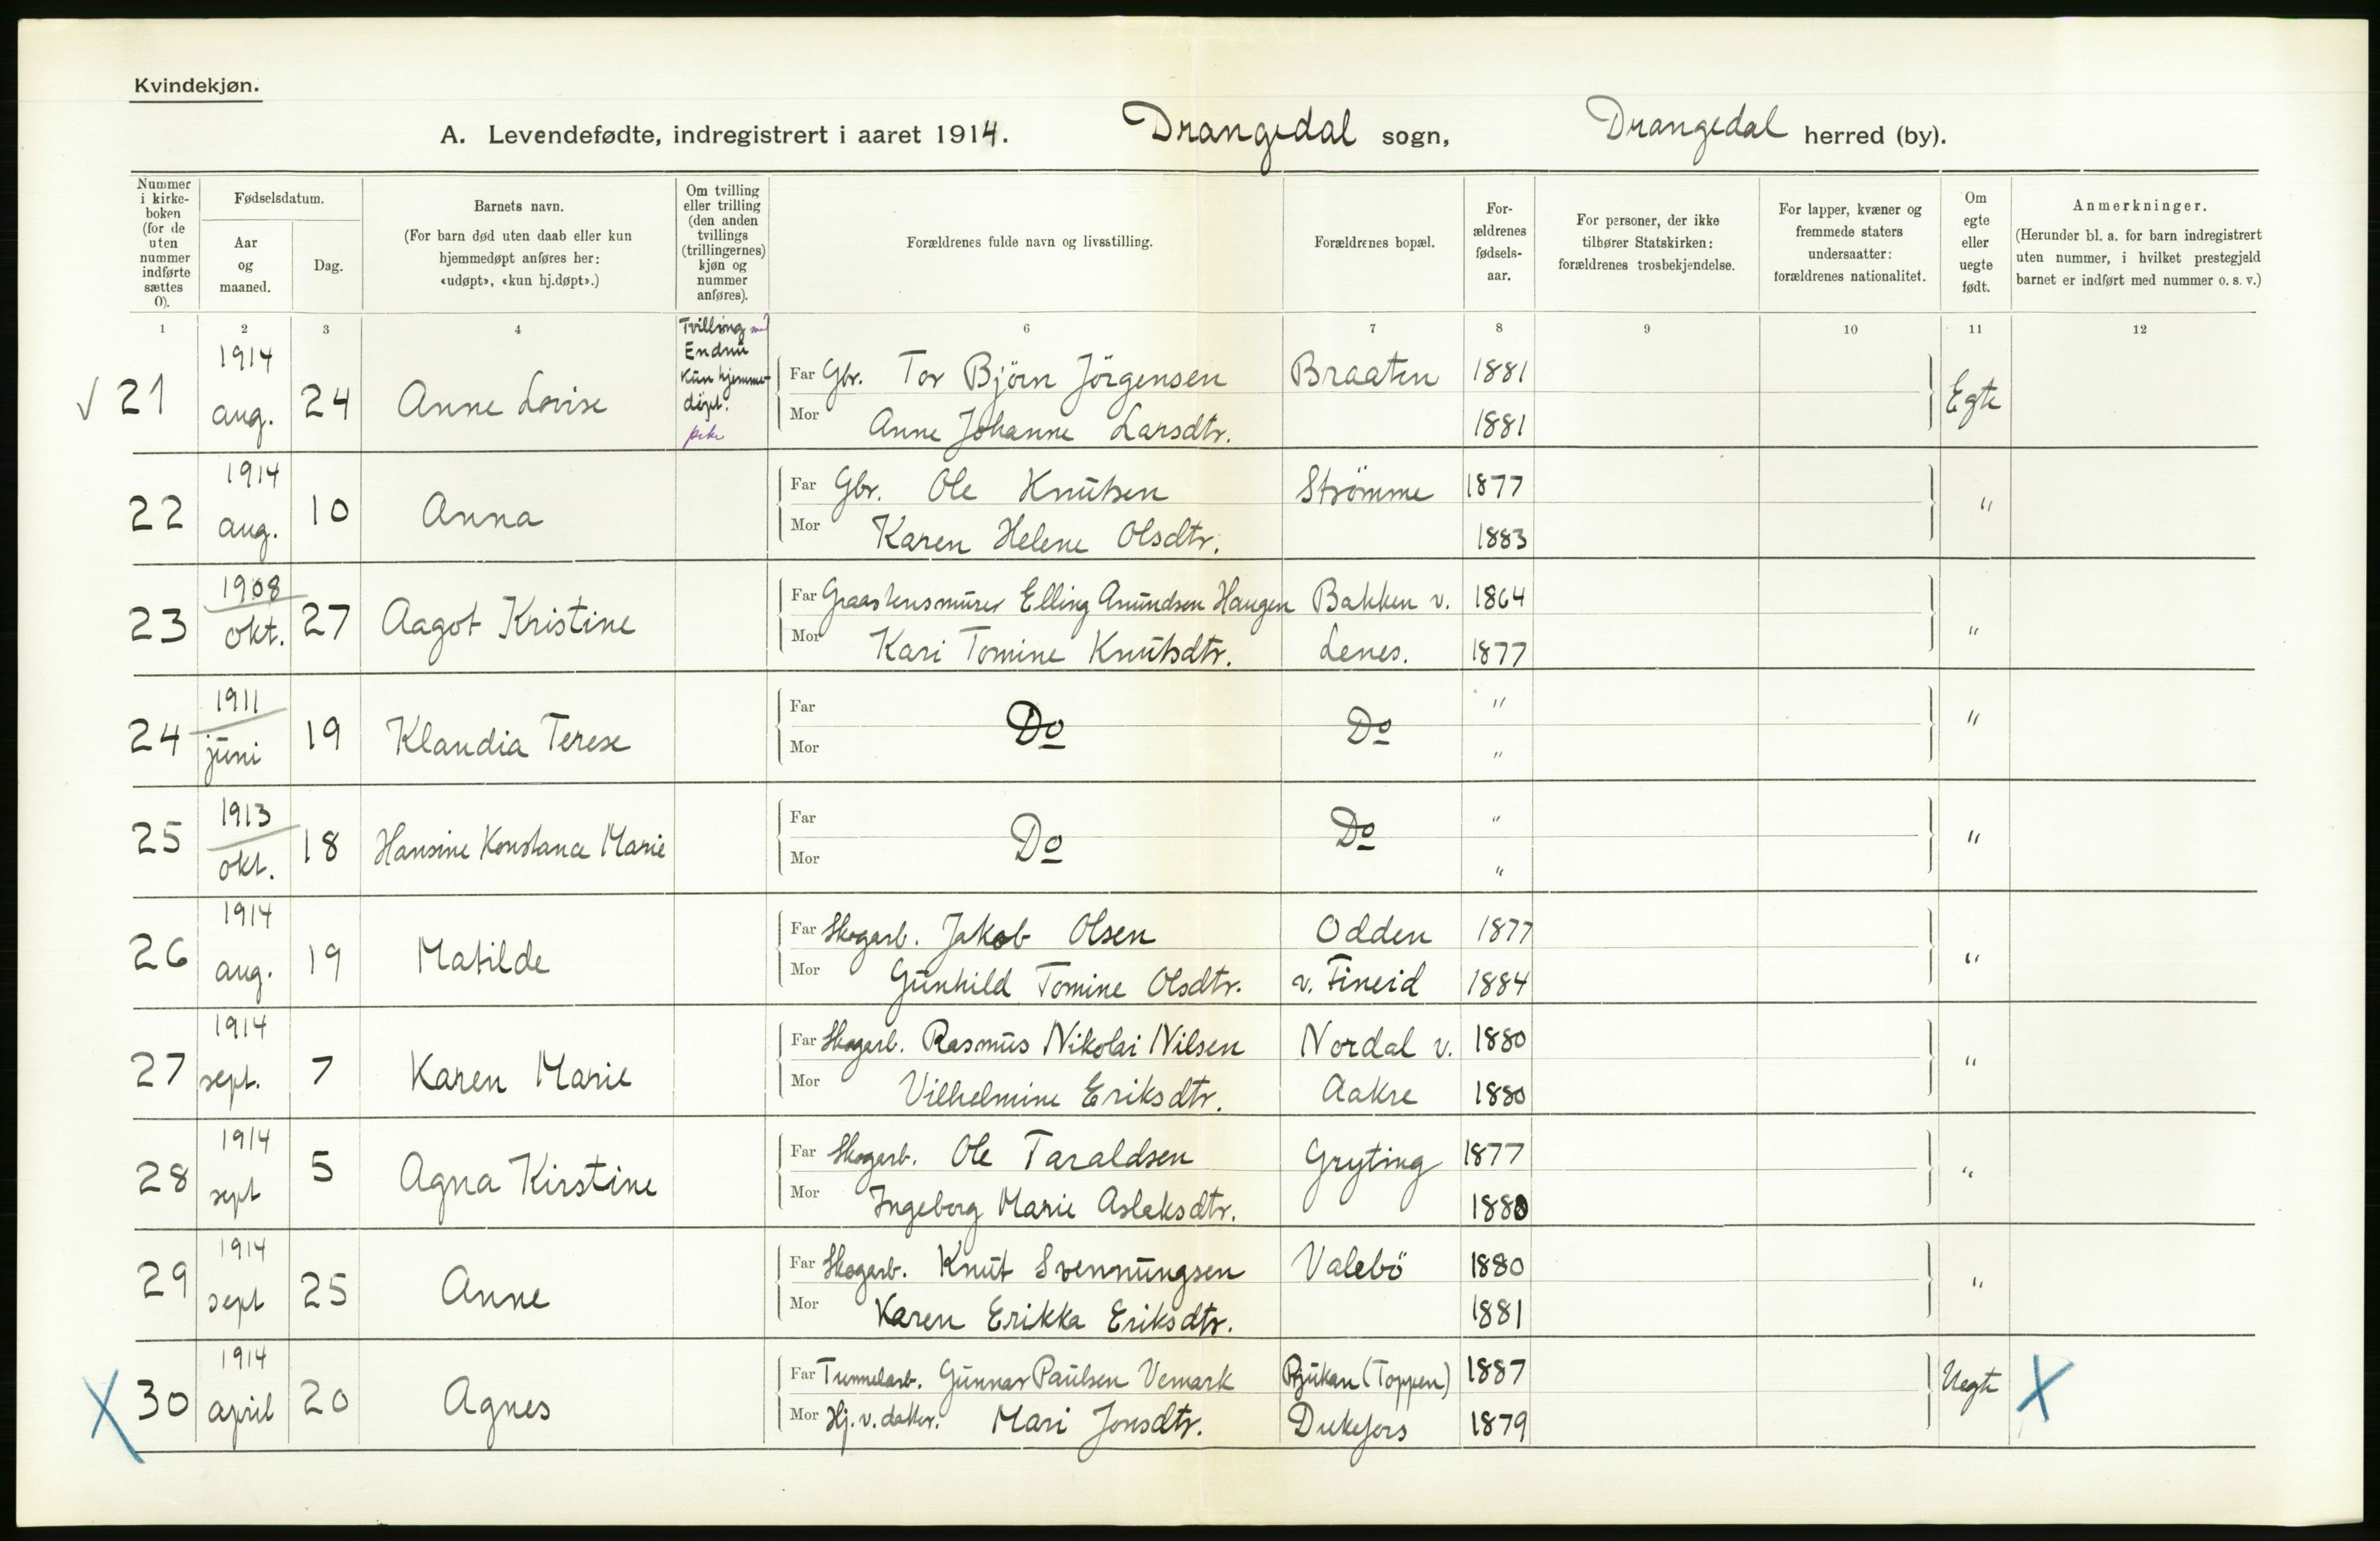 Kvindekjøn.
A. Levendefødte, indregistrert i aaret 1914. Drangedal sogn, Drangedal herred (by).
Nummer i kirke-boken (for de uten nummer indførte sættes 0).
Fødselsdatum.
Aar og maaned.
Dag.
Barnets navn.
(For barn død uten daab eller kun hjemmedøpt anføres her: «udøpt», «kun hj.døpt».)
Om tvilling eller trilling (den anden tvillings (trillingernes) kjøn og nummer anføres).
Forældrenes fulde navn og livsstilling.
Forældrenes bopæl.
For-ældrenes fødsels-aar.
For personer, der ikke tilhører Statskirken: forældrenes trosbekjendelse.
For lapper, kvæner og fremmede staters undersaatter: forældrenes nationalitet.
Om egte eller uegte født.
Anmerkninger.
(Herunder bl. a. for barn indregistrert uten nummer, i hvilket prestegjeld barnet er indført med nummer o. s. v.)
1 2 3 4 6 7 8 9 10 11 12
√ 21 1914 aug. 24 Anne Lovise Tvilling med Endnu Kun hjemme-döpt. pike
Far Gbr. Tor Björn Jörgensen Braaten 1881 Egte
Mor Anne Johanne Larsdtr. 1881
22 1914 aug. 10 Anna
Far Gbr. Ole Knutsen Strömme 1877 "
Mor Karen Helene Olsdtr. 1883
23 1908 okt. 27 Aagot Kristine
Far Graastensmurer Elling Amundsen Haugen Bakken v. 1864 "
Mor Kari Tomine Knutsdtr. Lenes. 1877
24 1911 juni 19 Klaudia Terese
Far Do Do " "
Mor "
25 1913 okt. 18 Hansine Konstance Marie
Far Do Do " "
Mor "
26 1914 aug. 19 Matilde
Far Skogarb. Jakob Olsen Odden 1877 "
Mor Gunhild Tomine Olsdtr. v. Fineid 1884
27 1914 sept. 7 Karen Marie
Far Skogarb. Rasmus Nikolai Nilsen Nordal v. 1880 "
Mor Vilhelmine Eriksdtr. Aakre 1880
28 1914 sept 5 Agna Kirstine
Far Skogarb. Ole Taraldsen Gryting 1877 "
Mor Ingeborg Marie Aslaksdtr. 1880
29 1914 sept 25 Anne
Far Skogarb. Knut Svennungsen Valebö 1880 "
Mor Karen Erikka Eriksdtr. 1881
X 30 1914 april 20 Agnes
Far Tunnelarb. Gunnar Paulsen Vemark Rjukan (Toppen) 1887 Uegte X
Mor Hj. v. datter. Mari Jonsdtr. 1879